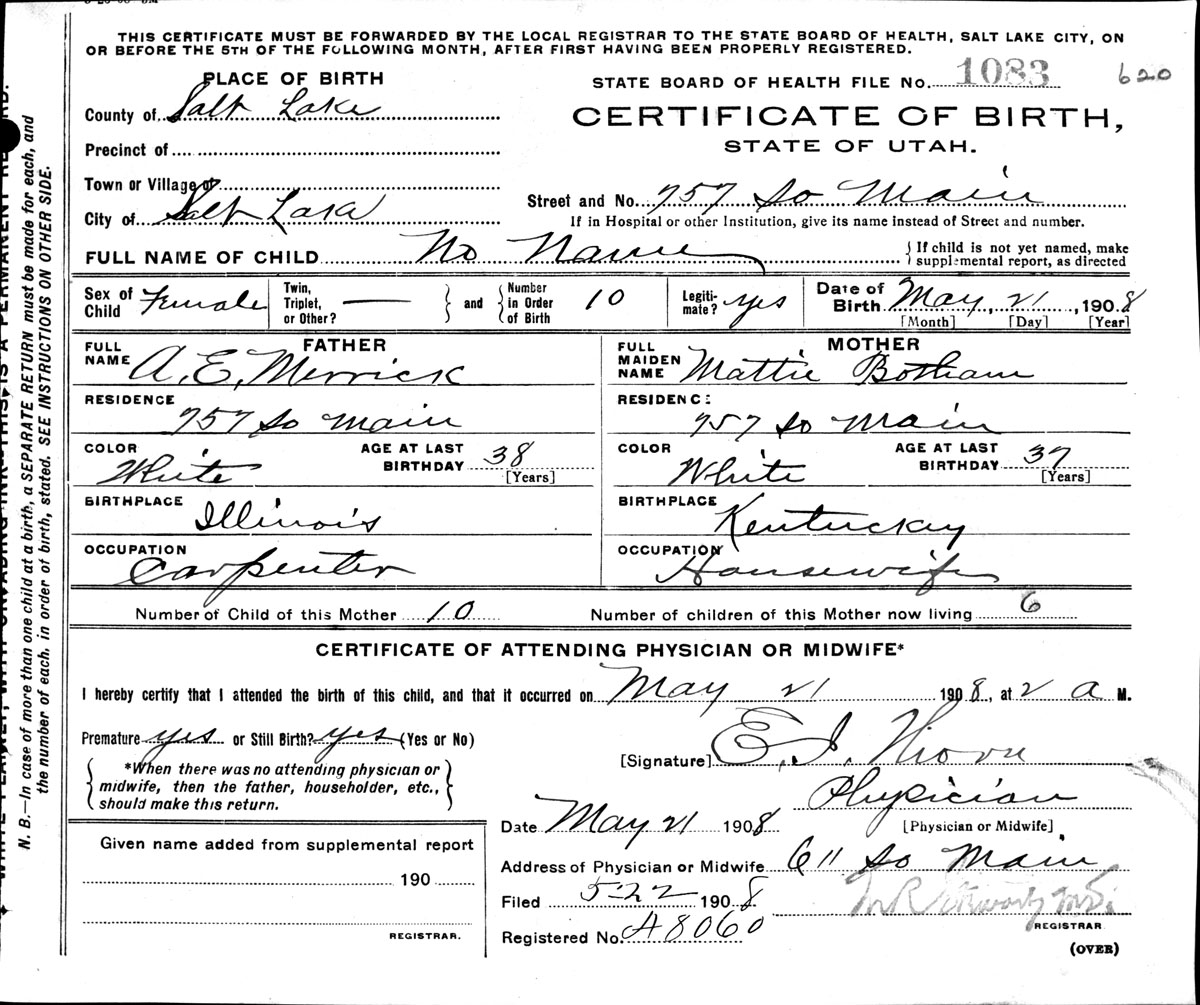 THIS CERTIFICATE MUST BE FORWARDED BY THE LOCAL REGISTRAR TO THE STATE BOARD OF HEALTH, SALT LAKE CITY, ON
OR BEFORE THE 5TH OF THE FOLLOWING MONTH, AFTER FIRST HAVING BEEN PROPERLY REGISTERED.
PLACE OF BIRTH
STATE BOARD OF HEALTH FILE No. 1083 620
County of Salt Lake
CERTIFICATE OF BIRTH,
STATE OF UTAH.
Precinct of
Town or Village of
Street and No. 757 So Main
City of Salt Lake
If in Hospital or other Institution, give its name instead of Street and number.
FULL NAME OF CHILD No Name
If child is not yet named, make
supplemental report, as directed
Sex of Child Female
Twin, Triplet, or Other? —
and Number in Order of Birth 10
Legitimate? yes
Date of Birth May, 21, 1908
[Month] [Day] [Year]
FATHER
FULL NAME A. E. Merrick
RESIDENCE 757 So Main
COLOR White AGE AT LAST BIRTHDAY 38 [Years]
BIRTHPLACE Illinois
OCCUPATION Carpenter
MOTHER
FULL MAIDEN NAME Mattie Botham
RESIDENCE 757 So Main
COLOR White AGE AT LAST BIRTHDAY 37 [Years]
BIRTHPLACE Kentuckay
OCCUPATION Housewife
Number of Child of this Mother 10 Number of children of this Mother now living 6
CERTIFICATE OF ATTENDING PHYSICIAN OR MIDWIFE*
I hereby certify that I attended the birth of this child, and that it occurred on May 21 1908, at 2 a M.
Premature yes or Still Birth? yes (Yes or No)
[Signature] E. I.
*When there was no attending physician or
midwife, then the father, householder, etc.,
should make this return.
Physician
[Physician or Midwife]
Date May 21 1908
Address of Physician or Midwife 611 So Main
Filed 5-22 1908
REGISTRAR
Registered No. A8060
(OVER)
Given name added from supplemental report
190
REGISTRAR.
N. B.—In case of more than one child at a birth, a SEPARATE RETURN must be made for each, and
the number of each, in order of birth, stated. SEE INSTRUCTIONS ON OTHER SIDE.